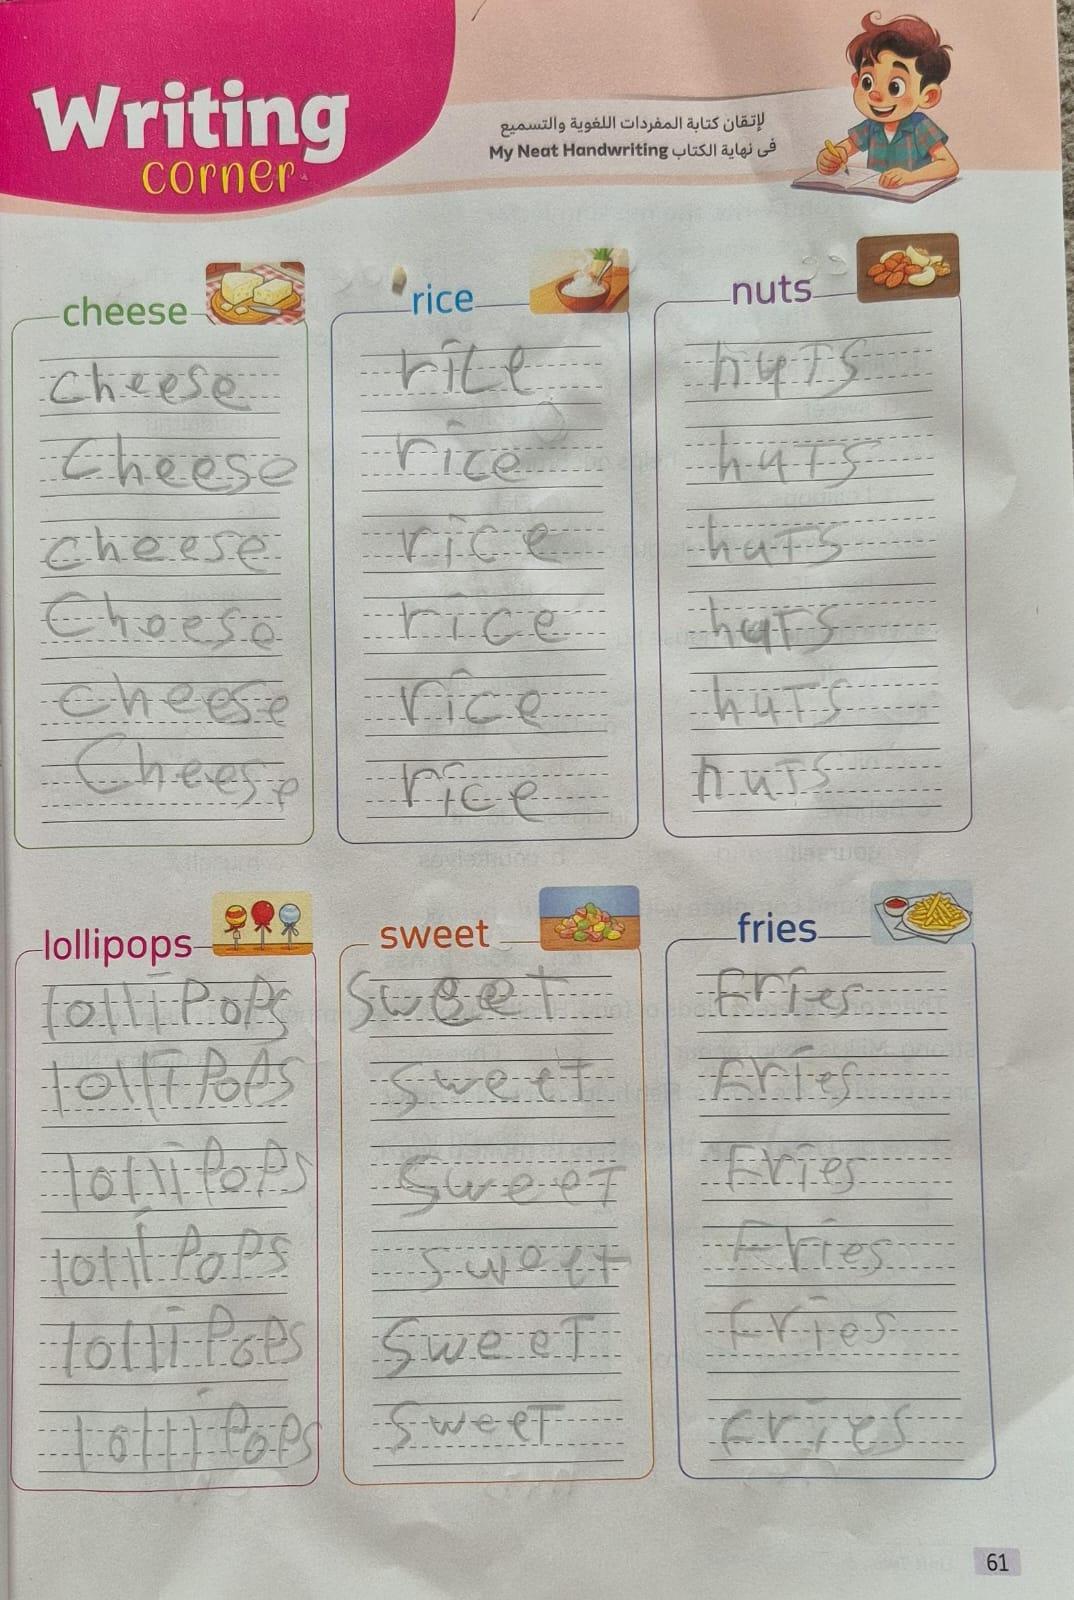 Writing
corner
لإتقان كتابة المفردات اللغوية والتسميع
فى نهاية الكتاب My Neat Handwriting
cheese
cheese
Cheese
cheese
Cheese
cheese
Cheese
rice
rice
rice
rice
rice
rice
rice
nuts
huTS
huTS
huTS
huTS
huTS
huTS
lollipops
lolliPoPs
lolliPoPs
lolliPoPs
lolliPoPs
lolliPoPs
lolliPoPs
sweet
SweeT
SweeT
SweeT
sweet
SweeT
SweeT
fries
Fries
Fries
Fries
Fries
Fries
Fries
61